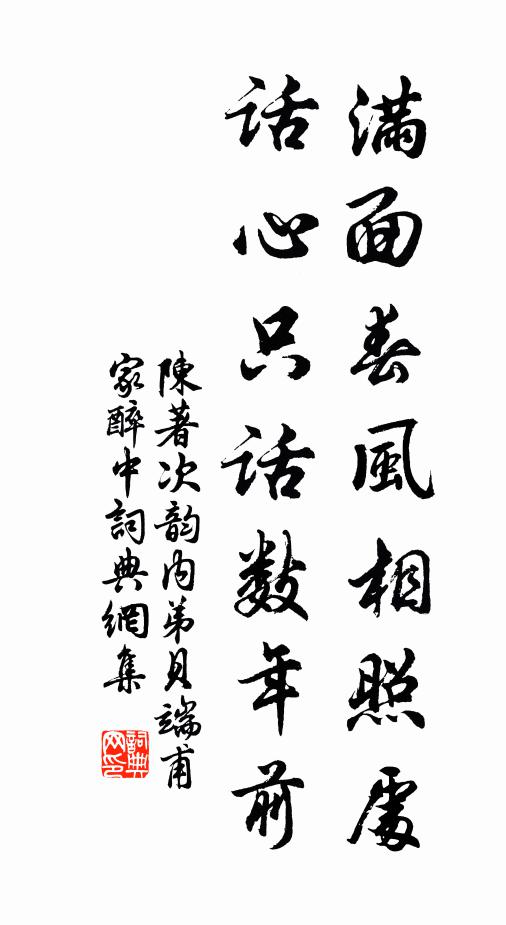 滿面春風相照處
話心只話數年前
陳著次韵內弟貝端甫
家醉中詞典網集
詞典网印